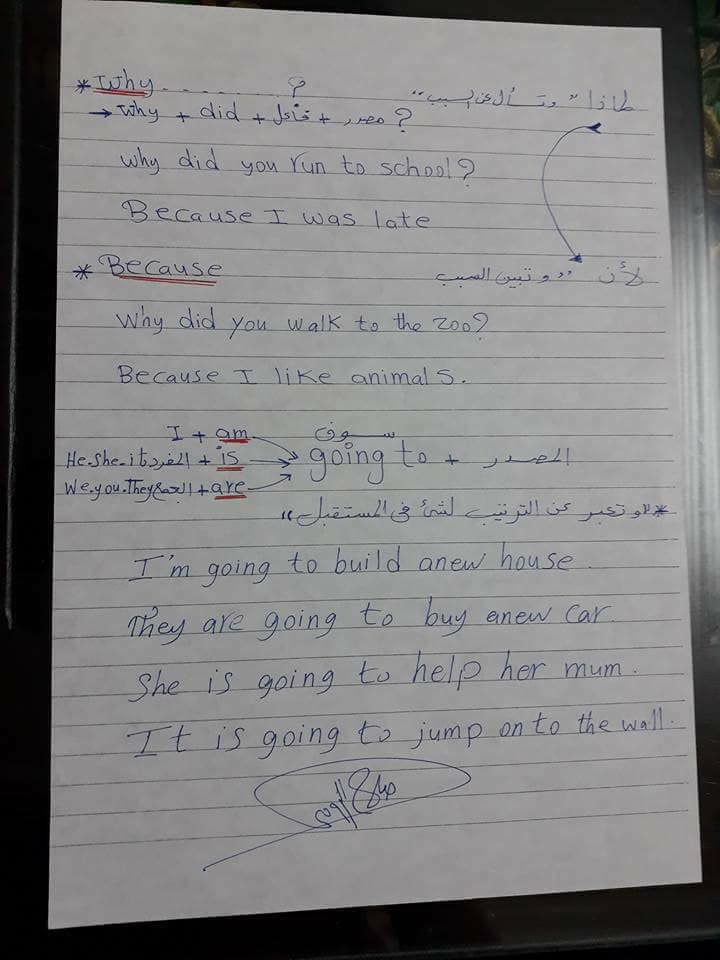 * Why ........? لماذا "وتسأل عن السبب"
→ why + did + فاعل + مصدر ?
why did you run to school?
Because I was late
* Because لأن "وتبين السبب
Why did you walk to the zoo?
Because I like animals.
I + am سوف
He.She.it المفرد + is going to + المصدر
We.you.They الجمع + are
* "وتعبر عن الترتيب لشئ فى المستقبل"
I'm going to build anew house.
They are going to buy anew car.
She is going to help her mum.
It is going to jump on to the wall.